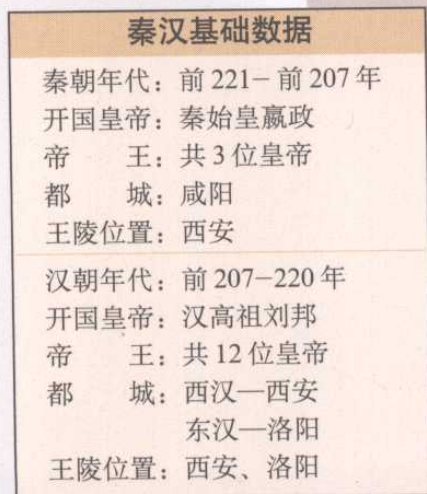 秦汉基础数据
秦朝年代：前221－前207年
开国皇帝：秦始皇嬴政
帝　　王：共3位皇帝
都　　城：咸阳
王陵位置：西安
汉朝年代：前207－220年
开国皇帝：汉高祖刘邦
帝　　王：共12位皇帝
都　　城：西汉—西安
东汉—洛阳
王陵位置：西安、洛阳